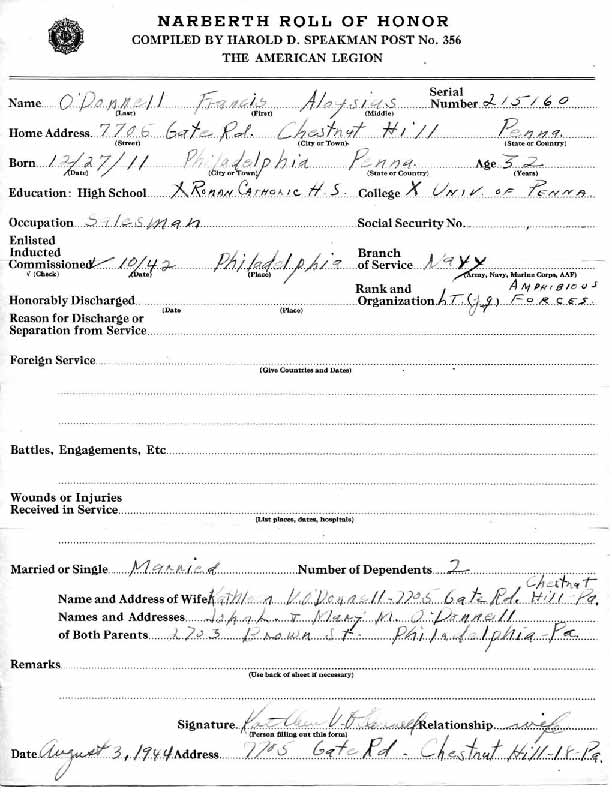 NARBERTH ROLL OF HONOR
COMPILED BY HAROLD D. SPEAKMAN POST No. 356
THE AMERICAN LEGION
Name O'Donnell Francis Aloysius Serial Number 215160
(Last) (First) (Middle)
Home Address 7705 Gate Rd. Chestnut Hill Penna.
(Street) (City or Town) (State or Country)
Born 12/27/11 Philadelphia Penna. Age 32
(Date) (City or Town) (State or Country) (Years)
Education: High School X Roman Catholic H.S. College X Univ. of Penna.
Occupation Salesman Social Security No.
Enlisted
Inducted Branch
Commissioned ✓ 10/42 Philadelphia of Service Navy
√ (Check) (Date) (Place) (Army, Navy, Marine Corps, AAF)
Rank and Amphibious
Honorably Discharged Organization Lt. (jg) Forces.
(Date (Place)
Reason for Discharge or
Separation from Service
Foreign Service
(Give Countries and Dates)
Battles, Engagements, Etc
Wounds or Injuries
Received in Service
(List places, dates, hospitals)
Married or Single Married Number of Dependents 2
Chestnut
Name and Address of Wife Kathleen V. O'Donnell - 7705 Gate Rd. Hill - Pa.
Names and Addresses John L. & Mary M. O'Donnell
of Both Parents 2703 Brown St. Philadelphia - Pa
Remarks
(Use back of sheet if necessary)
Signature Kathleen V. O'Donnell Relationship wife
(Person filling out this form)
Date August 3, 1944 Address 7705 Gate Rd - Chestnut Hill - 18 - Pa.